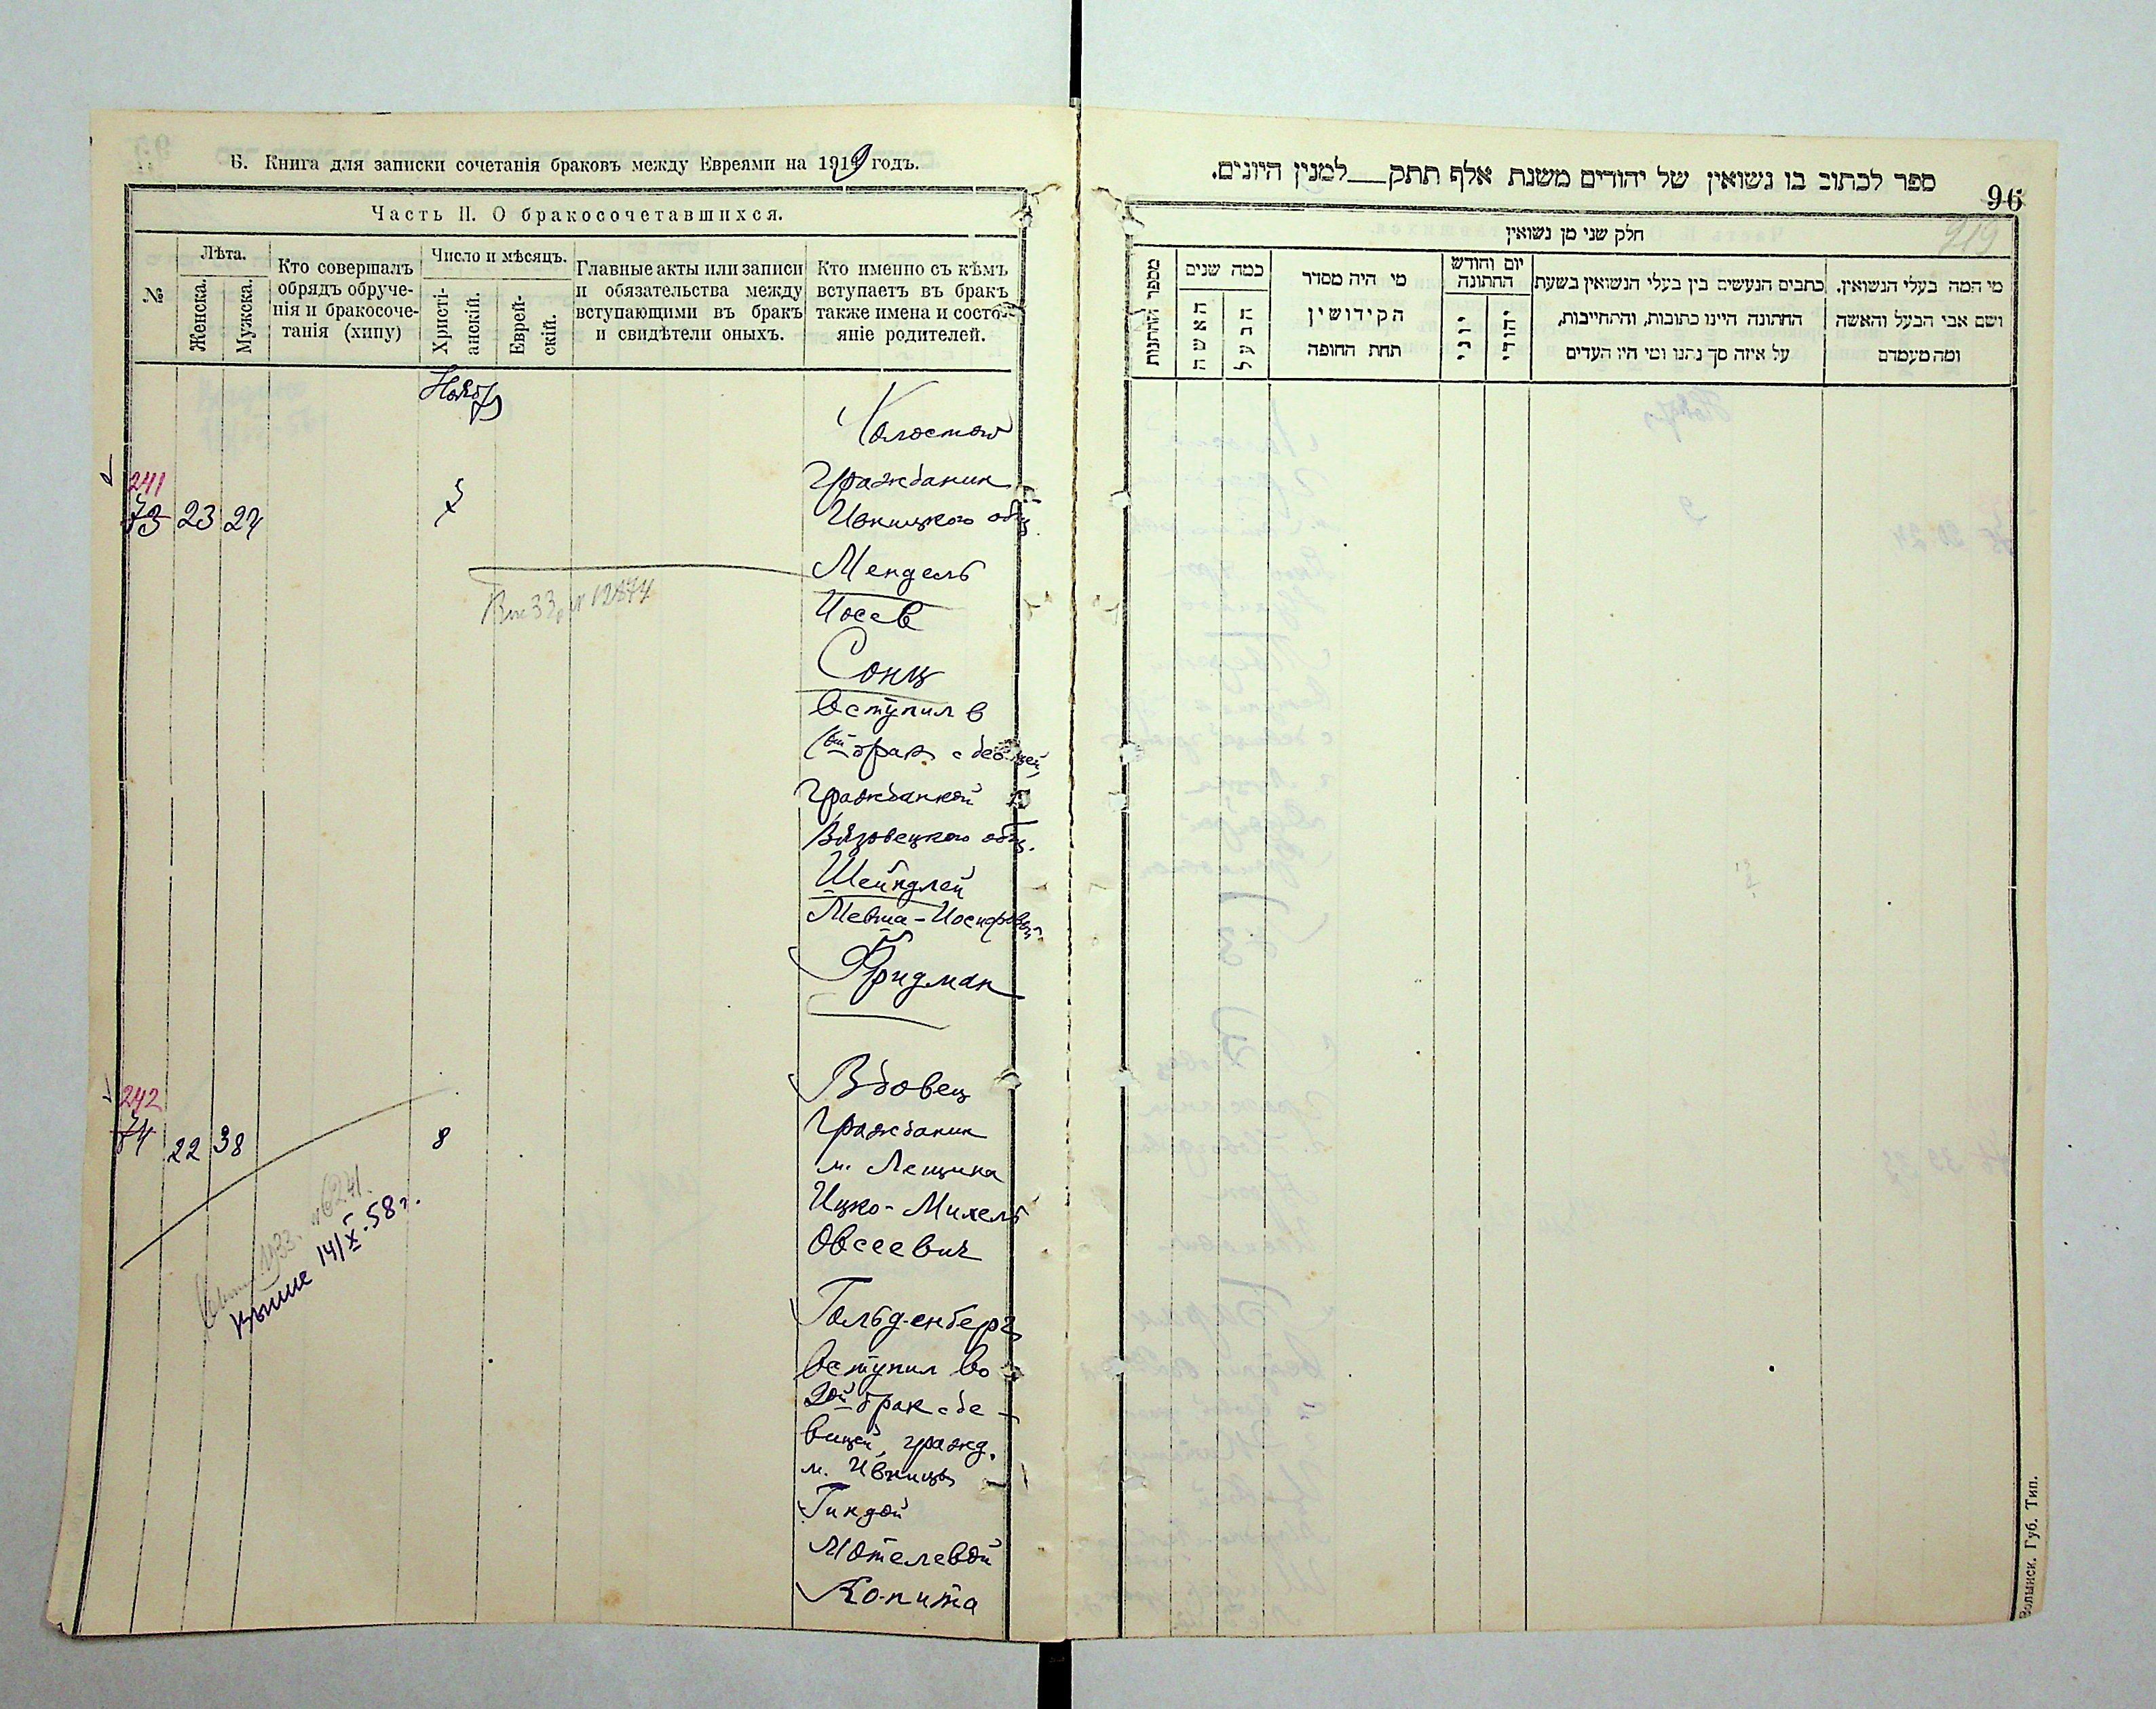 Б. Книга для записки сочетанія браковъ между Евреями на 1919 годъ.
Часть II. О бракосочетавшихся.
№
Лѣта.
Женска.
Мужска.
Кто совершалъ
обрядъ обруче-
нія и бракосоче-
танія (хипу)
Число и мѣсяцъ.
Христі-
анскій.
Еврей-
скій.
Главные акты или записи
и обязательства между
вступающими въ бракъ
и свидѣтели оныхъ.
Кто именно съ кѣмъ
вступаетъ въ бракъ
также имена и состо-
яніе родителей.
Ноябрь
241
73 23 24
7
Холостой
Гражданин
Ивницкого общ.
Мендель
Иосев
Сонц
вступил в
1ый брак с девицей,
гражданкой
Вязовецкого общ.
Шейндлей
Мевша-Иосифовой
Фридман
242
74 22 38
8
14/X.58г.
Вдовец
Гражданин
м. Лещина
Ицко-Михель
Овсеевич
Гольденберг
вступил во
2ой брак с де-
вицей, гражд.
м. Ивницы
Гиндой
Мотелевой
Копита
ספר לכתוב בו נשואין של יהודים משנת אלף תתק___למנין היונים.
96
219
חלק שני מן נשואין
מספר החתנות
כמה שנים
האשה
הבעל
מי היה מסדר
הקידושין
תחת החופה
יום וחודש
החתונה
יוני
יהודי
כתבים הנעשים בין בעלי הנשואין בשעת
החתונה היינו כתובות, והתחייבות,
על איזה סך נתנו ומי היו העדים
מי המה בעלי הנשואין,
ושם אבי הבעל והאשה
ומה מעמדם
Волынск. Губ. Тип.